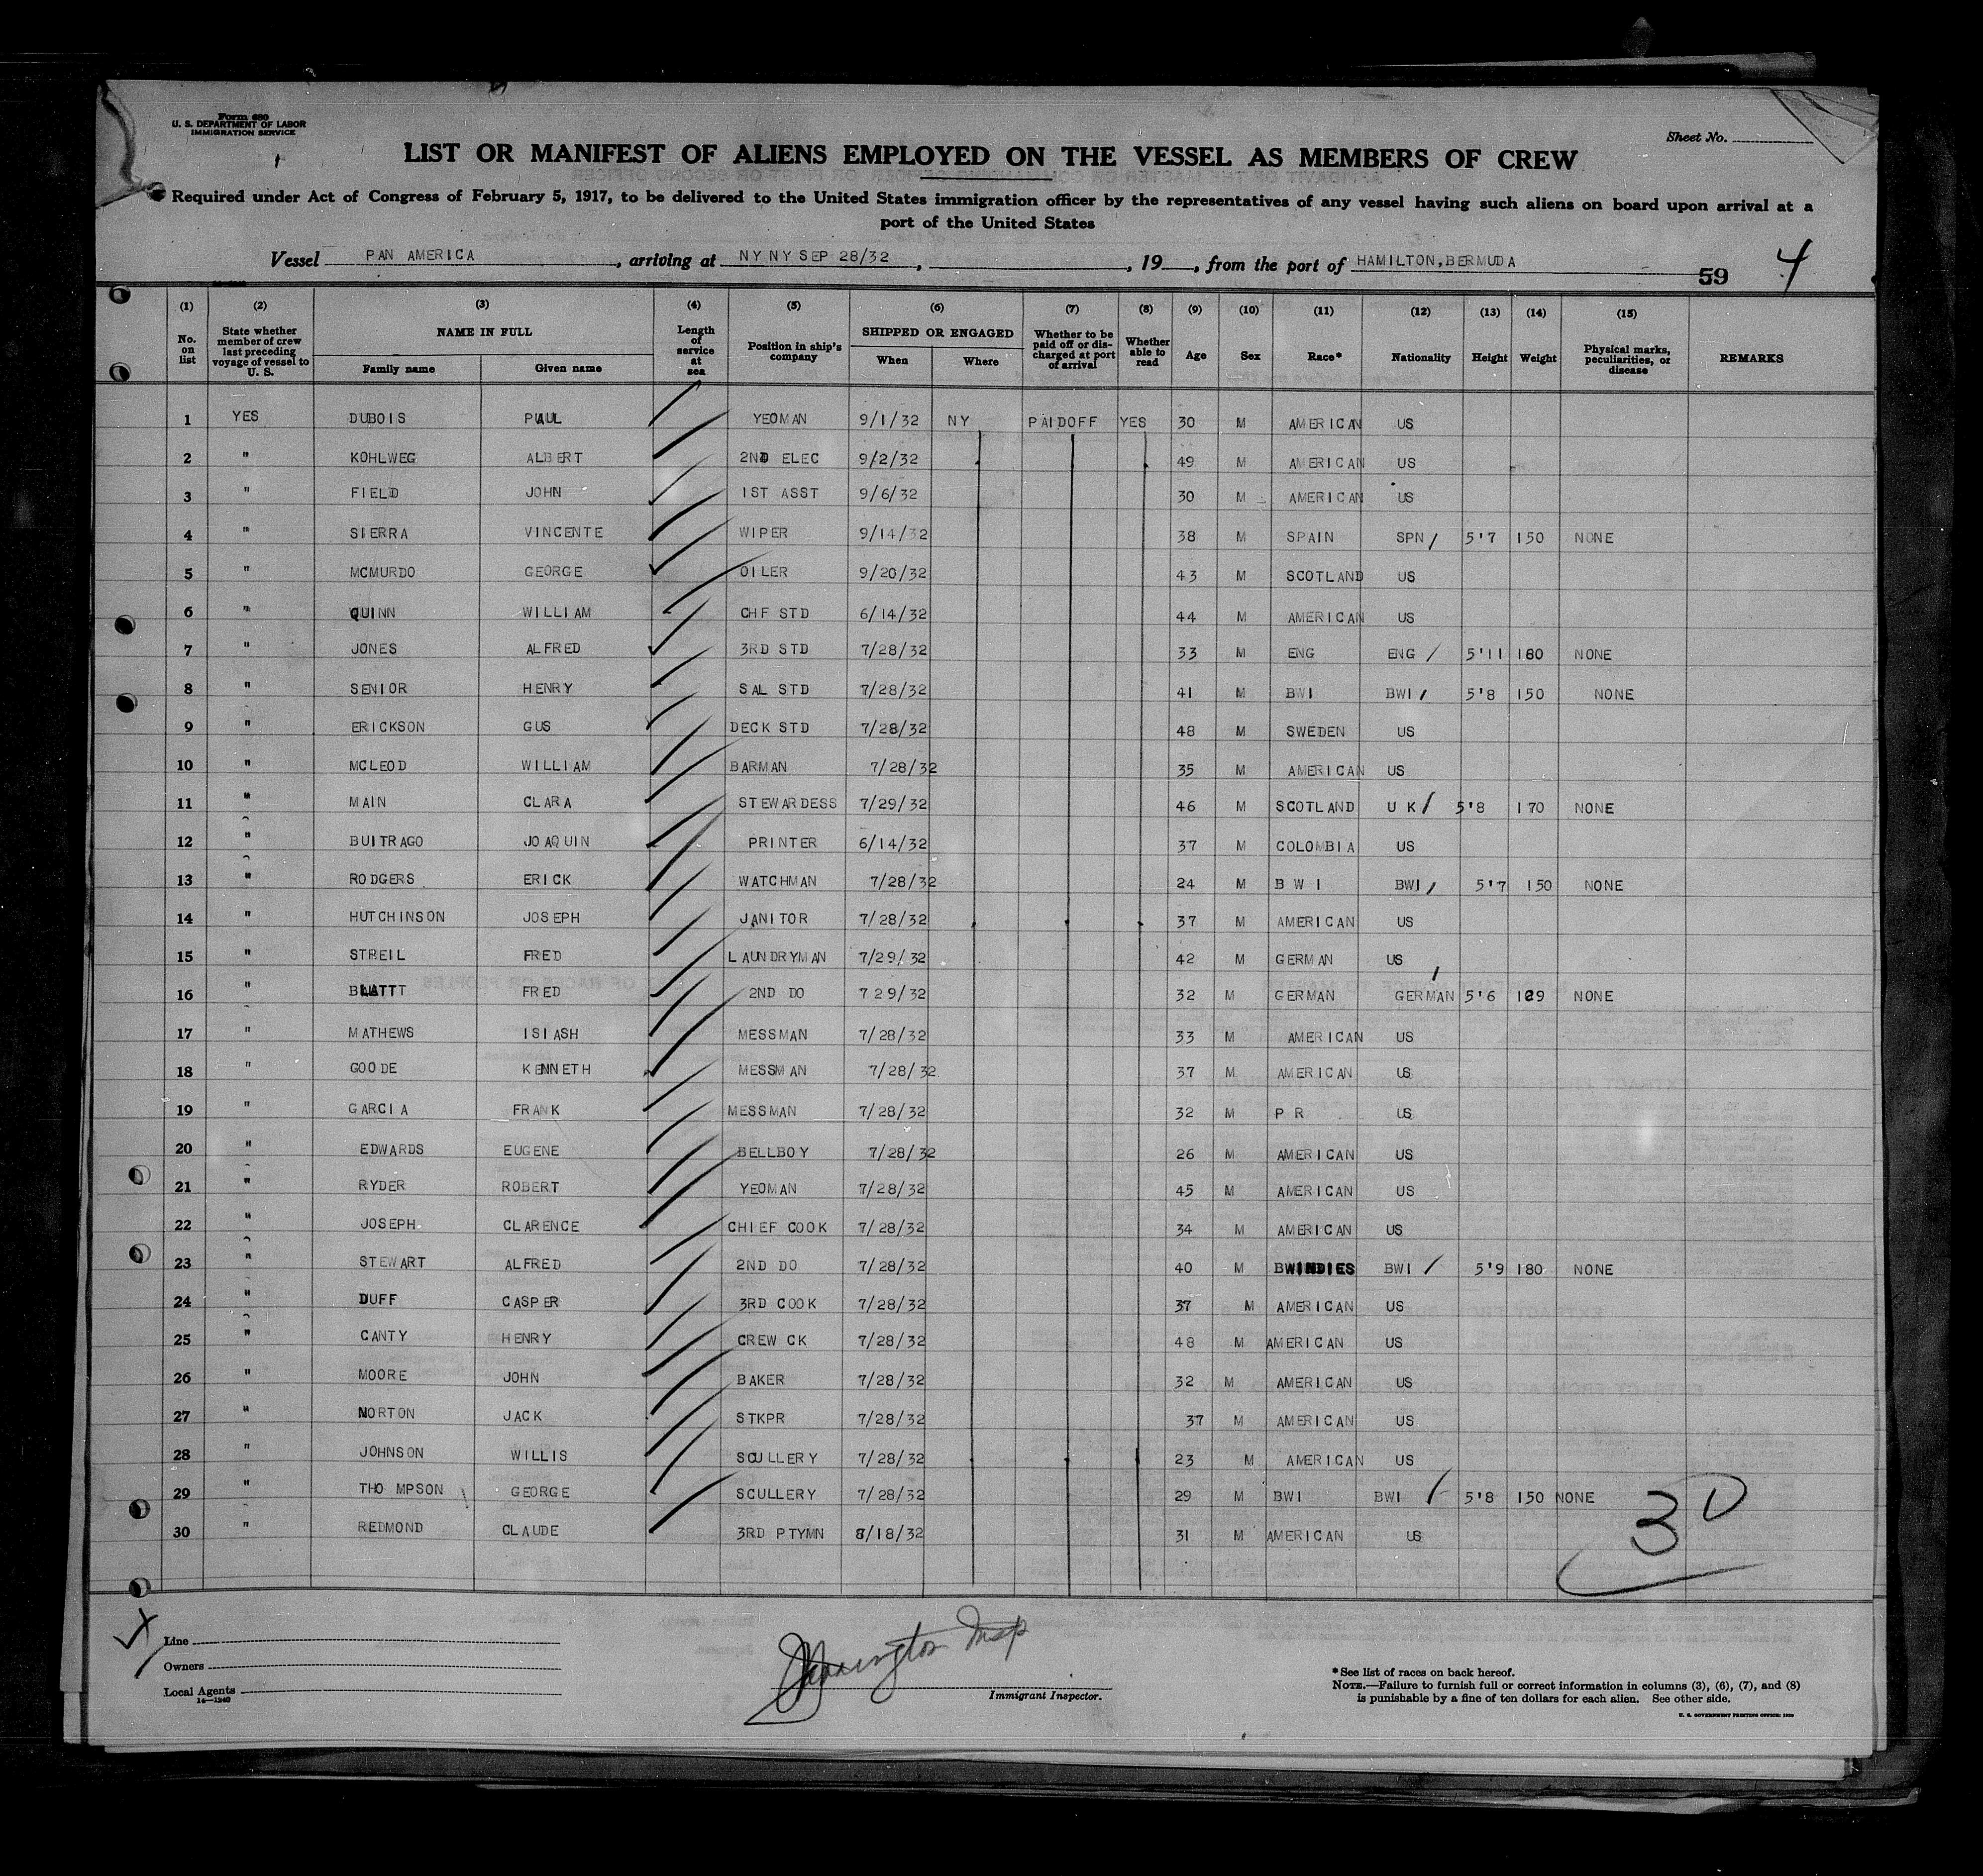 Form 680
U. S. DEPARTMENT OF LABOR
IMMIGRATION SERVICE
Sheet No.
LIST OR MANIFEST OF ALIENS EMPLOYED ON THE VESSEL AS MEMBERS OF CREW
Required under Act of Congress of February 5, 1917, to be delivered to the United States immigration officer by the representatives of any vessel having such aliens on board upon arrival at a
port of the United States
Vessel PAN AMERICA, arriving at NY NY SEP 28/32, , 19 , from the port of HAMILTON,BERMUDA 59 4
(1) (2) (3) (4) (5) (6) (7) (8) (9) (10) (11) (12) (13) (14) (15)
No. on list State whether member of crew last preceding voyage of vessel to U. S. NAME IN FULL Family name Given name Length of service at sea Position in ship's company SHIPPED OR ENGAGED When Where Whether to be paid off or discharged at port of arrival Whether able to read Age Sex Race* Nationality Height Weight Physical marks, peculiarities, or disease REMARKS
1 YES DUBOIS PAUL YEOMAN 9/1/32 NY PAIDOFF YES 30 M AMERICAN US
2 " KOHLWEG ALBERT 2ND ELEC 9/2/32 49 M AMERICAN US
3 " FIELD JOHN 1ST ASST 9/6/32 30 M AMERICAN US
4 " SIERRA VINCENTE WIPER 9/14/32 38 M SPAIN SPN 5'7 150 NONE
5 " MCMURDO GEORGE OILER 9/20/32 43 M SCOTLAND US
6 " QUINN WILLIAM CHF STD 6/14/32 44 M AMERICAN US
7 " JONES ALFRED 3RD STD 7/28/32 33 M ENG ENG 5'11 160 NONE
8 " SENIOR HENRY SAL STD 7/28/32 41 M BWI BWI 5'8 150 NONE
9 " ERICKSON GUS DECK STD 7/28/32 48 M SWEDEN US
10 " MCLEOD WILLIAM BARMAN 7/28/32 35 M AMERICAN US
11 " MAIN CLARA STEWARDESS 7/29/32 46 M SCOTLAND U K 5'8 170 NONE
12 " BUITRAGO JOAQUIN PRINTER 6/14/32 37 M COLOMBIA US
13 " RODGERS ERICK WATCHMAN 7/28/32 24 M B W I BWI 5'7 150 NONE
14 " HUTCHINSON JOSEPH JANITOR 7/28/32 37 M AMERICAN US
15 " STREIL FRED LAUNDRYMAN 7/29/32 42 M GERMAN US
16 " BLATTT FRED 2ND DO 7 29/32 32 M GERMAN GERMAN 5'6 129 NONE
17 " MATHEWS ISIASH MESSMAN 7/28/32 33 M AMERICAN US
18 " GOODE KENNETH MESSMAN 7/28/32 37 M AMERICAN US
19 " GARCIA FRANK MESSMAN 7/28/32 32 M P R US
20 " EDWARDS EUGENE BELLBOY 7/28/32 26 M AMERICAN US
21 " RYDER ROBERT YEOMAN 7/28/32 45 M AMERICAN US
22 " JOSEPH CLARENCE CHIEF COOK 7/28/32 34 M AMERICAN US
23 " STEWART ALFRED 2ND DO 7/28/32 40 M BWINDIES BWI 5'9 180 NONE
24 " DUFF CASPER 3RD COOK 7/28/32 37 M AMERICAN US
25 " CANTY HENRY CREW CK 7/28/32 48 M AMERICAN US
26 " MOORE JOHN BAKER 7/28/32 32 M AMERICAN US
27 " NORTON JACK STKPR 7/28/32 37 M AMERICAN US
28 " JOHNSON WILLIS SCULLERY 7/28/32 23 M AMERICAN US
29 " THOMPSON GEORGE SCULLERY 7/28/32 29 M BWI BWI 5'8 150 NONE
30 " REDMOND CLAUDE 3RD PTYMN 8/18/32 31 M AMERICAN US
30
Line
Owners
Local Agents
14—1240
Immigrant Inspector.
*See list of races on back hereof.
NOTE.—Failure to furnish full or correct information in columns (3), (6), (7), and (8)
is punishable by a fine of ten dollars for each alien. See other side.
U. S. GOVERNMENT PRINTING OFFICE: 1930